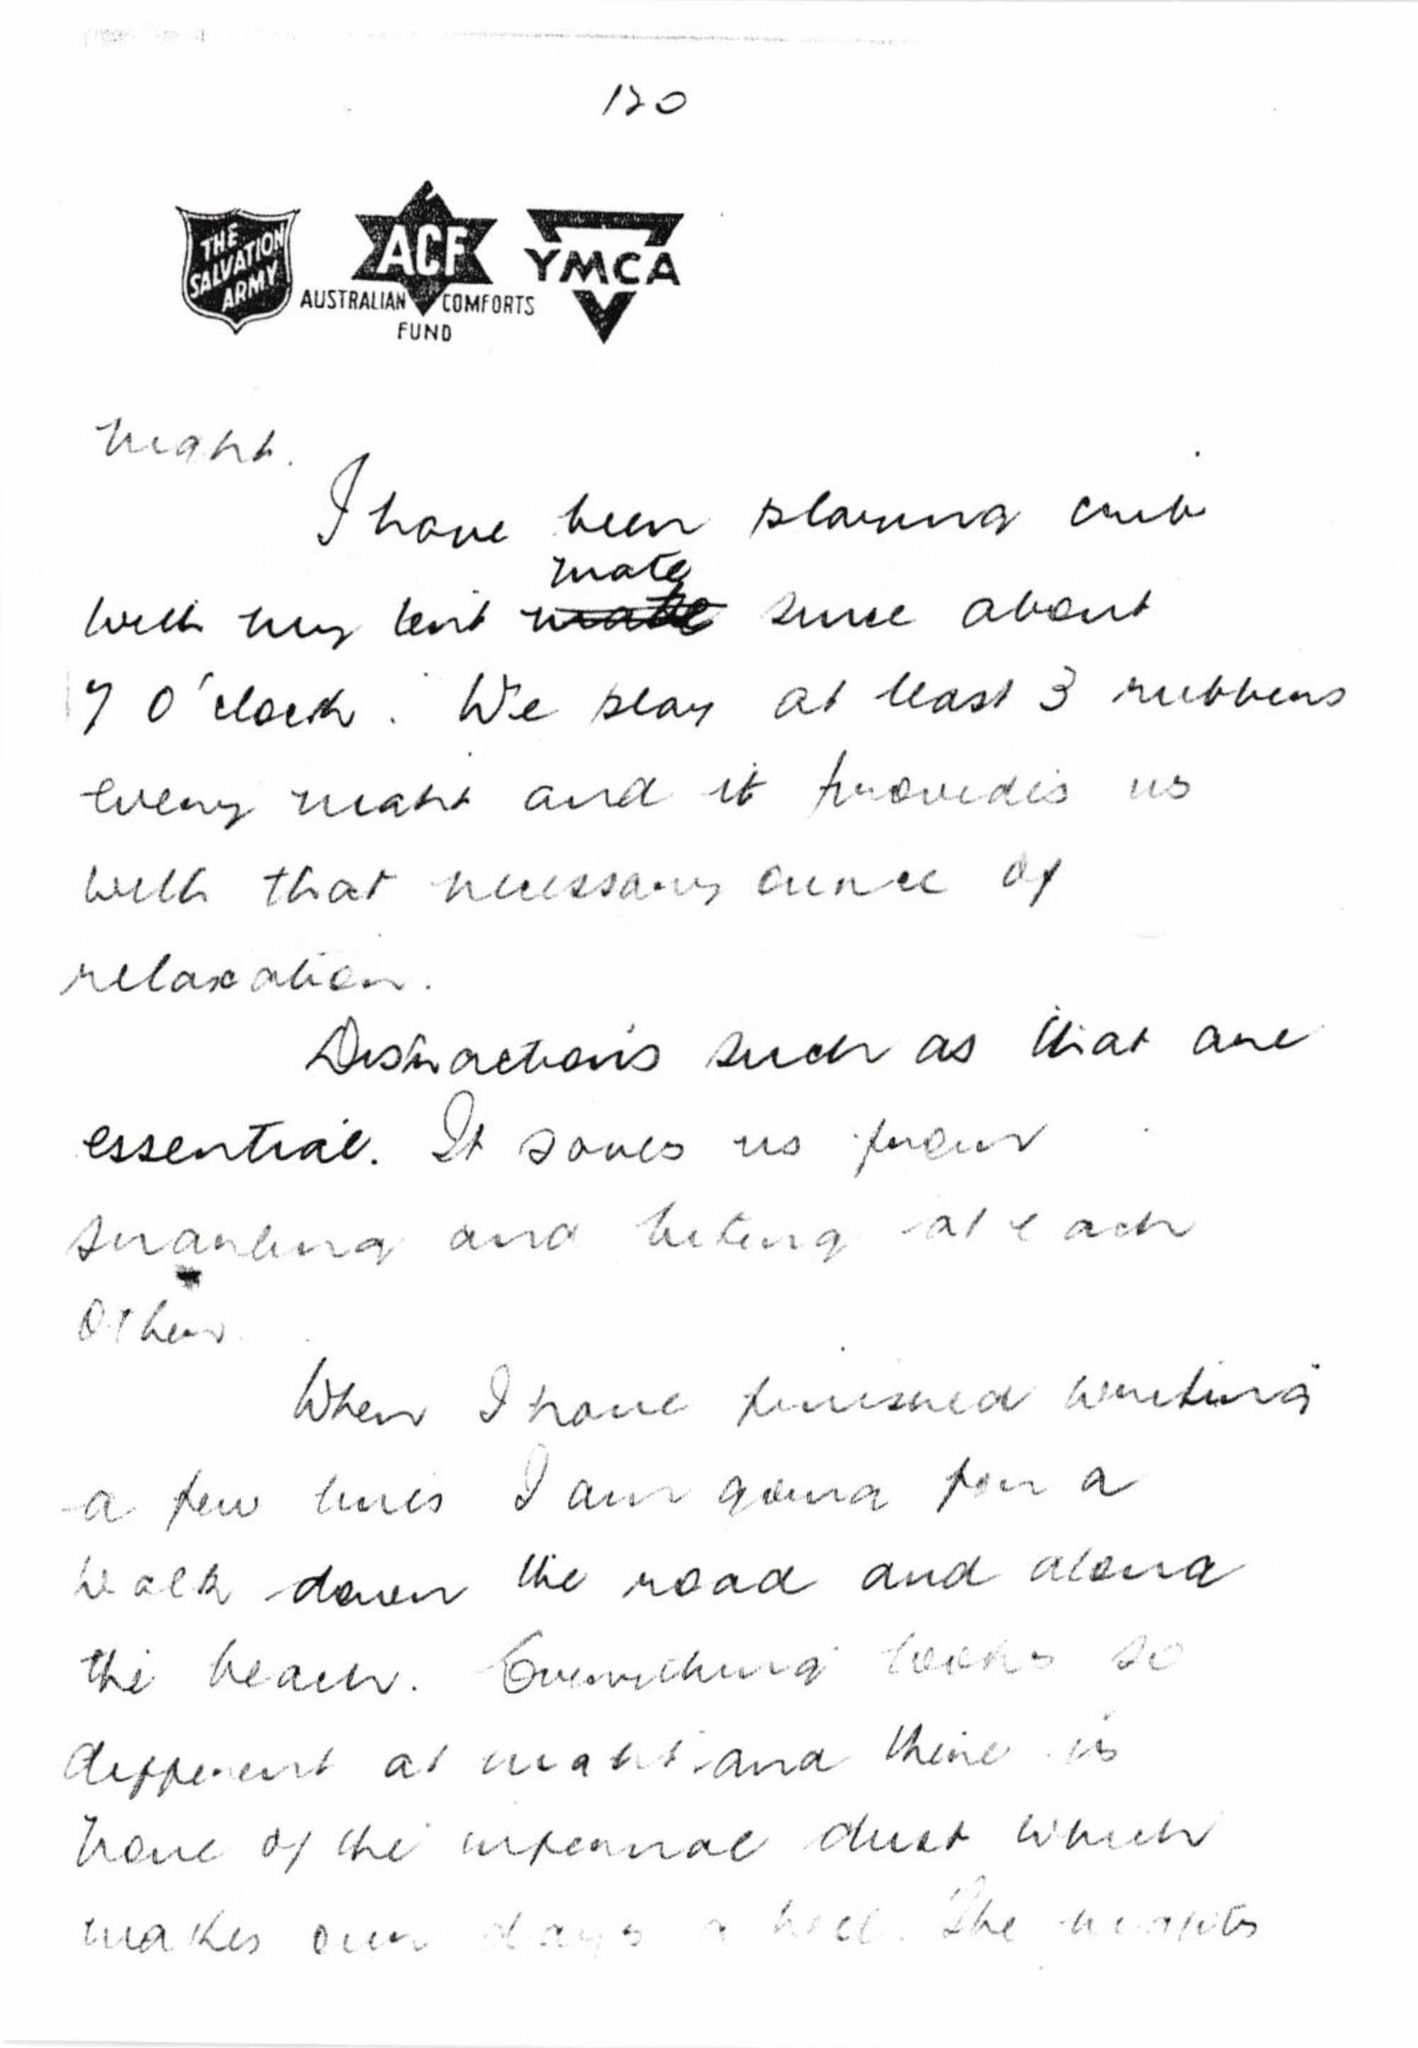 120
THE SALVATION ARMY
ACF
AUSTRALIAN COMFORTS FUND
YMCA
night.
I have been playing crib
mate
with my tent mate since about
7 O'clock. We play at least 3 rubbers
every night and it provides us
with that necessary ounce of
relaxation.
Distractions such as that are
essential. It saves us from
snarling and biting at each
other.
When I have finished writing
a few lines I am going for a
walk down the road and along
the beach. Everything looks so
different at night and there is
none of the infernal dust which
makes our days a hell. The nights